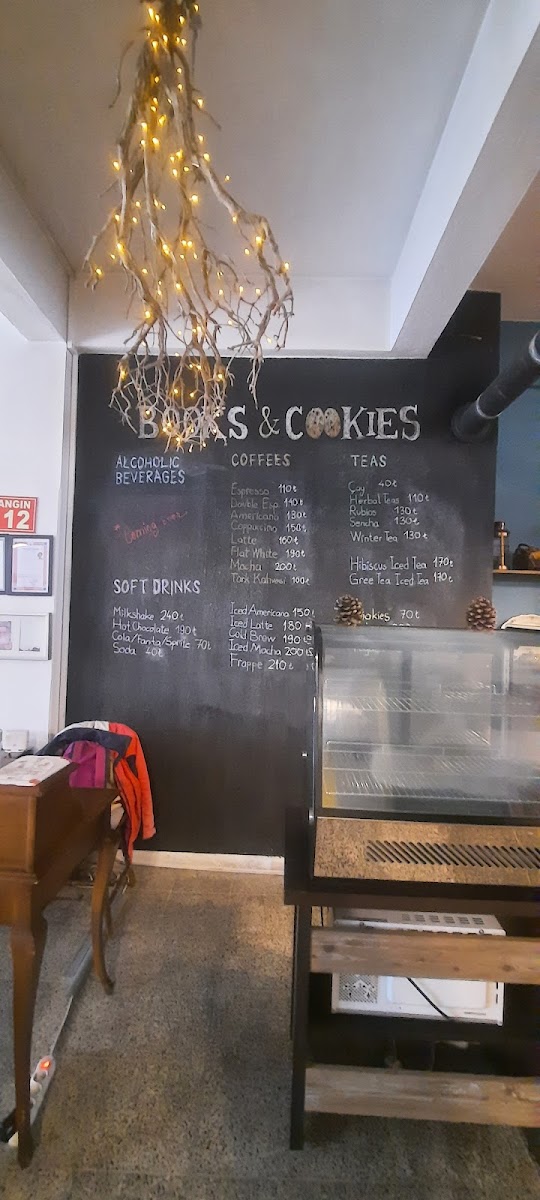 BOOKS & COOKIES
ALCOHOLIC
BEVERAGES
SOFT DRINKS
Milkshake 240₺
Hot Chocolate 190₺
Cola/Fanta/Sprite 70₺
Soda 40₺
COFFEES
Espresso 110₺
Double Esp. 140₺
Americano 130₺
Cappuccino 150₺
Latte 160₺
Flat White 190₺
Mocha 200₺
Türk Kahvesi 100₺
Iced Americano 150₺
Iced Latte 180₺
Cold Brew 190₺
Iced Mocha 200₺
Frappe 210₺
TEAS
Çay 40₺
Herbal Teas 110₺
Rubios 130₺
Sencha 130₺
Winter Tea 130₺
Hibiscus Iced Tea 170₺
Gree Tea Iced Tea 170₺
Cookies 70₺
ANGIN
12